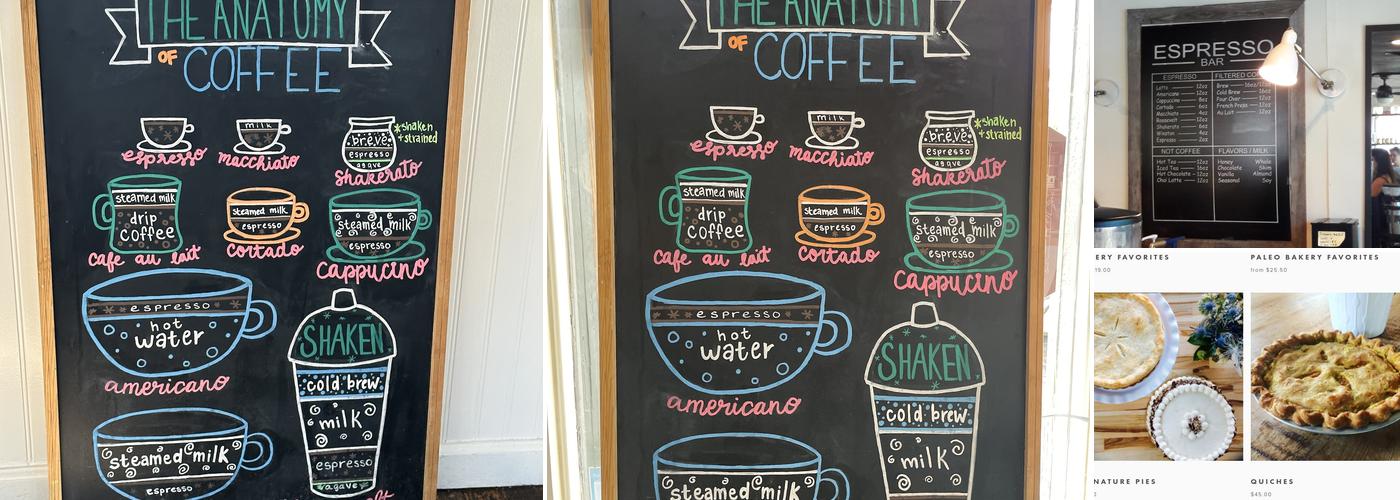 THE ANATOMY
OF
COFFEE
espresso
milk
macchiato
*shaken
+strained
breve
espresso
agave
shakerato
steamed milk
drip
coffee
cafe au lait
steamed milk
espresso
cortado
steamed milk
espresso
cappucino
espresso
hot
water
americano
SHAKEN
cold brew
milk
espresso
agave
steamed milk
espresso
THE ANATOMY
OF
COFFEE
espresso
milk
macchiato
*shaken
+strained
breve
espresso
agave
shakerato
steamed milk
drip
coffee
cafe au lait
steamed milk
espresso
cortado
steamed milk
espresso
cappucino
espresso
hot
water
americano
SHAKEN
cold brew
milk
steamed milk
ESPRESSO
BAR
ESPRESSO
Latte 12oz
Americano 12oz
Cappuccino 8oz
Cortado 6oz
Macchiato 4oz
Roosevelt 12oz
Shakerato 6oz
Winston 4oz
Espresso 2oz
FILTERED
Brew
Cold Brew 16oz
Pour Over 12oz
French Press 12oz
Au Lait 12oz
NOT COFFEE
Hot Tea 12oz
Iced Tea 16oz
Hot Chocolate 12oz
Chai Latte 12oz
FLAVORS / MILK
Honey Whole
Chocolate Skim
Vanilla Almond
Seasonal Soy
ERY FAVORITES
19.00
PALEO BAKERY FAVORITES
from $25.50
NATURE PIES
QUICHES
$45.00